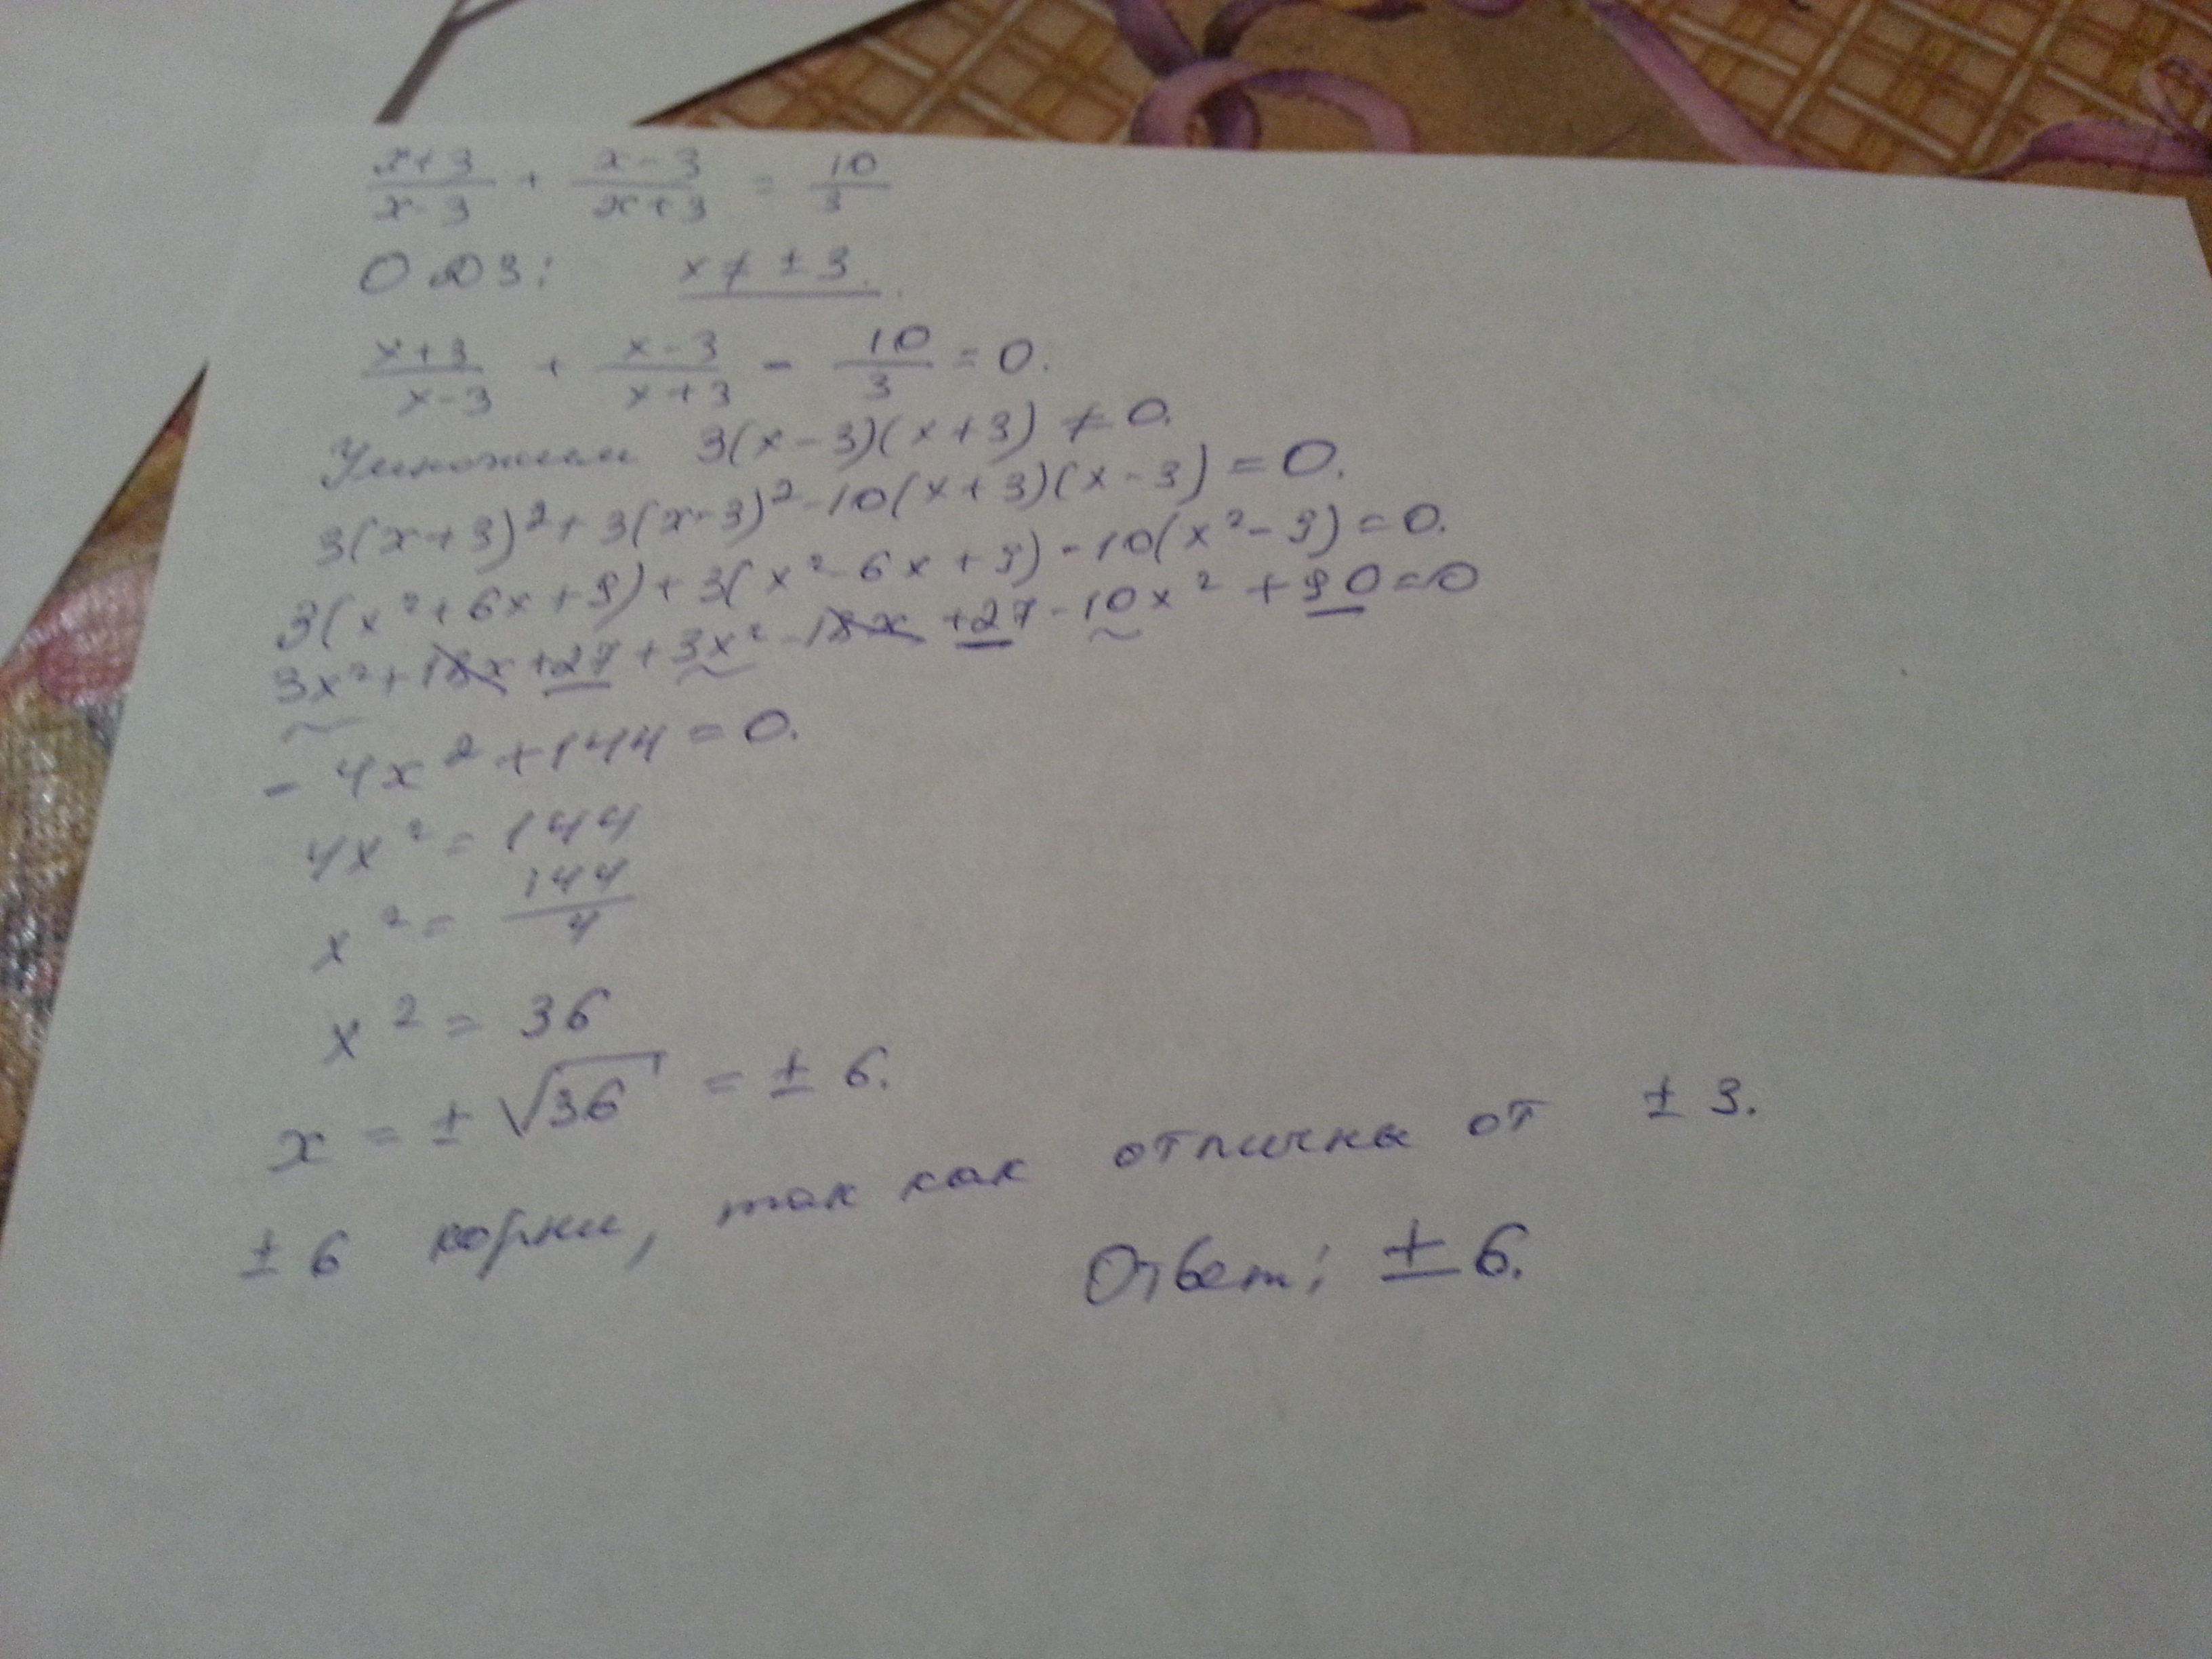 (x+3)/(x-3) + (x-3)/(x+3) = 10/3
ОДЗ: x ≠ ± 3.
(x+3)/(x-3) + (x-3)/(x+3) - 10/3 = 0.
Умножим 3(x-3)(x+3) ≠ 0.
3(x+3)² + 3(x-3)² - 10(x+3)(x-3) = 0.
3(x²+6x+9) + 3(x²-6x+9) - 10(x²-9) = 0.
3x²+18x+27+3x²-18x+27-10x²+90=0
- 4x² + 144 = 0.
4x² = 144
x² = 144/4
x² = 36
x = ± √36 = ± 6.
± 6 корни, так как отличны от ± 3.
Ответ: ± 6.